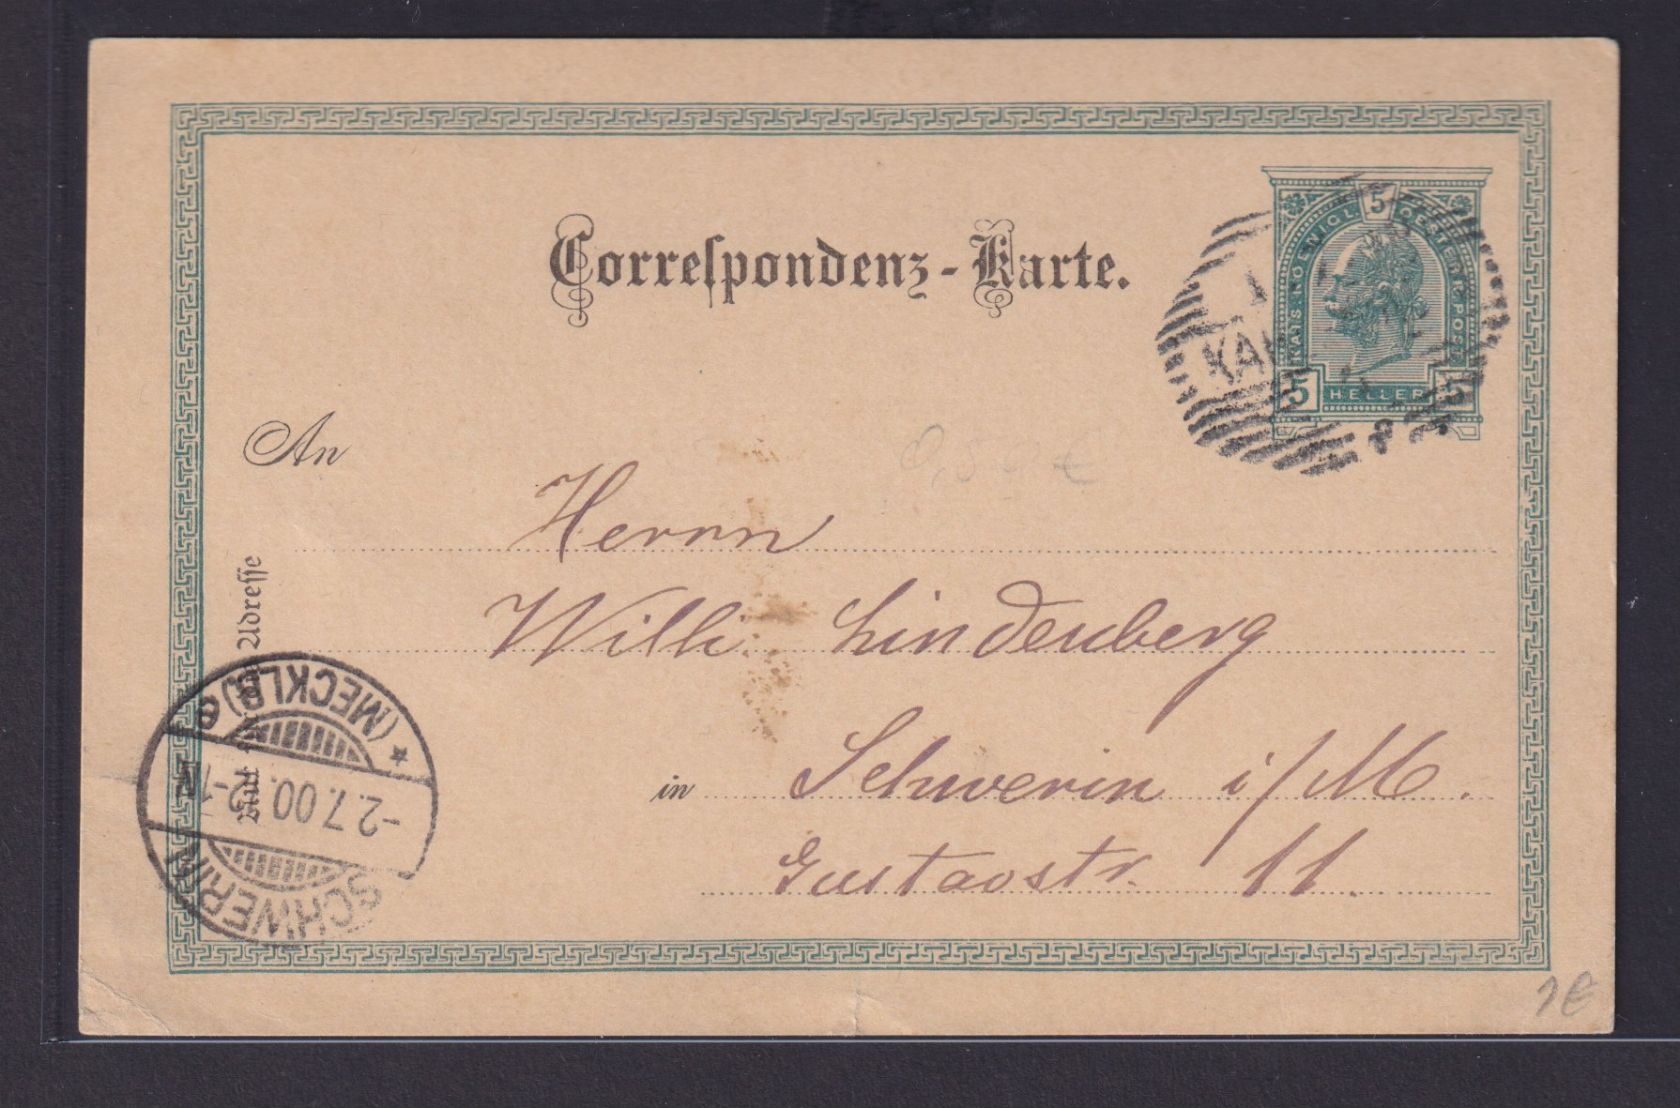 Correspondenz-Karte.
5
KAIS. KOENIGL. OESTERR. POST
5 HELLER 5
KA
An
Herrn
Willi Lindenberg
in Schwerin i/M.
Gustavstr. 11.
Adresse
SCHWERIN
-2.7.00.
(MECKLB) e
1€